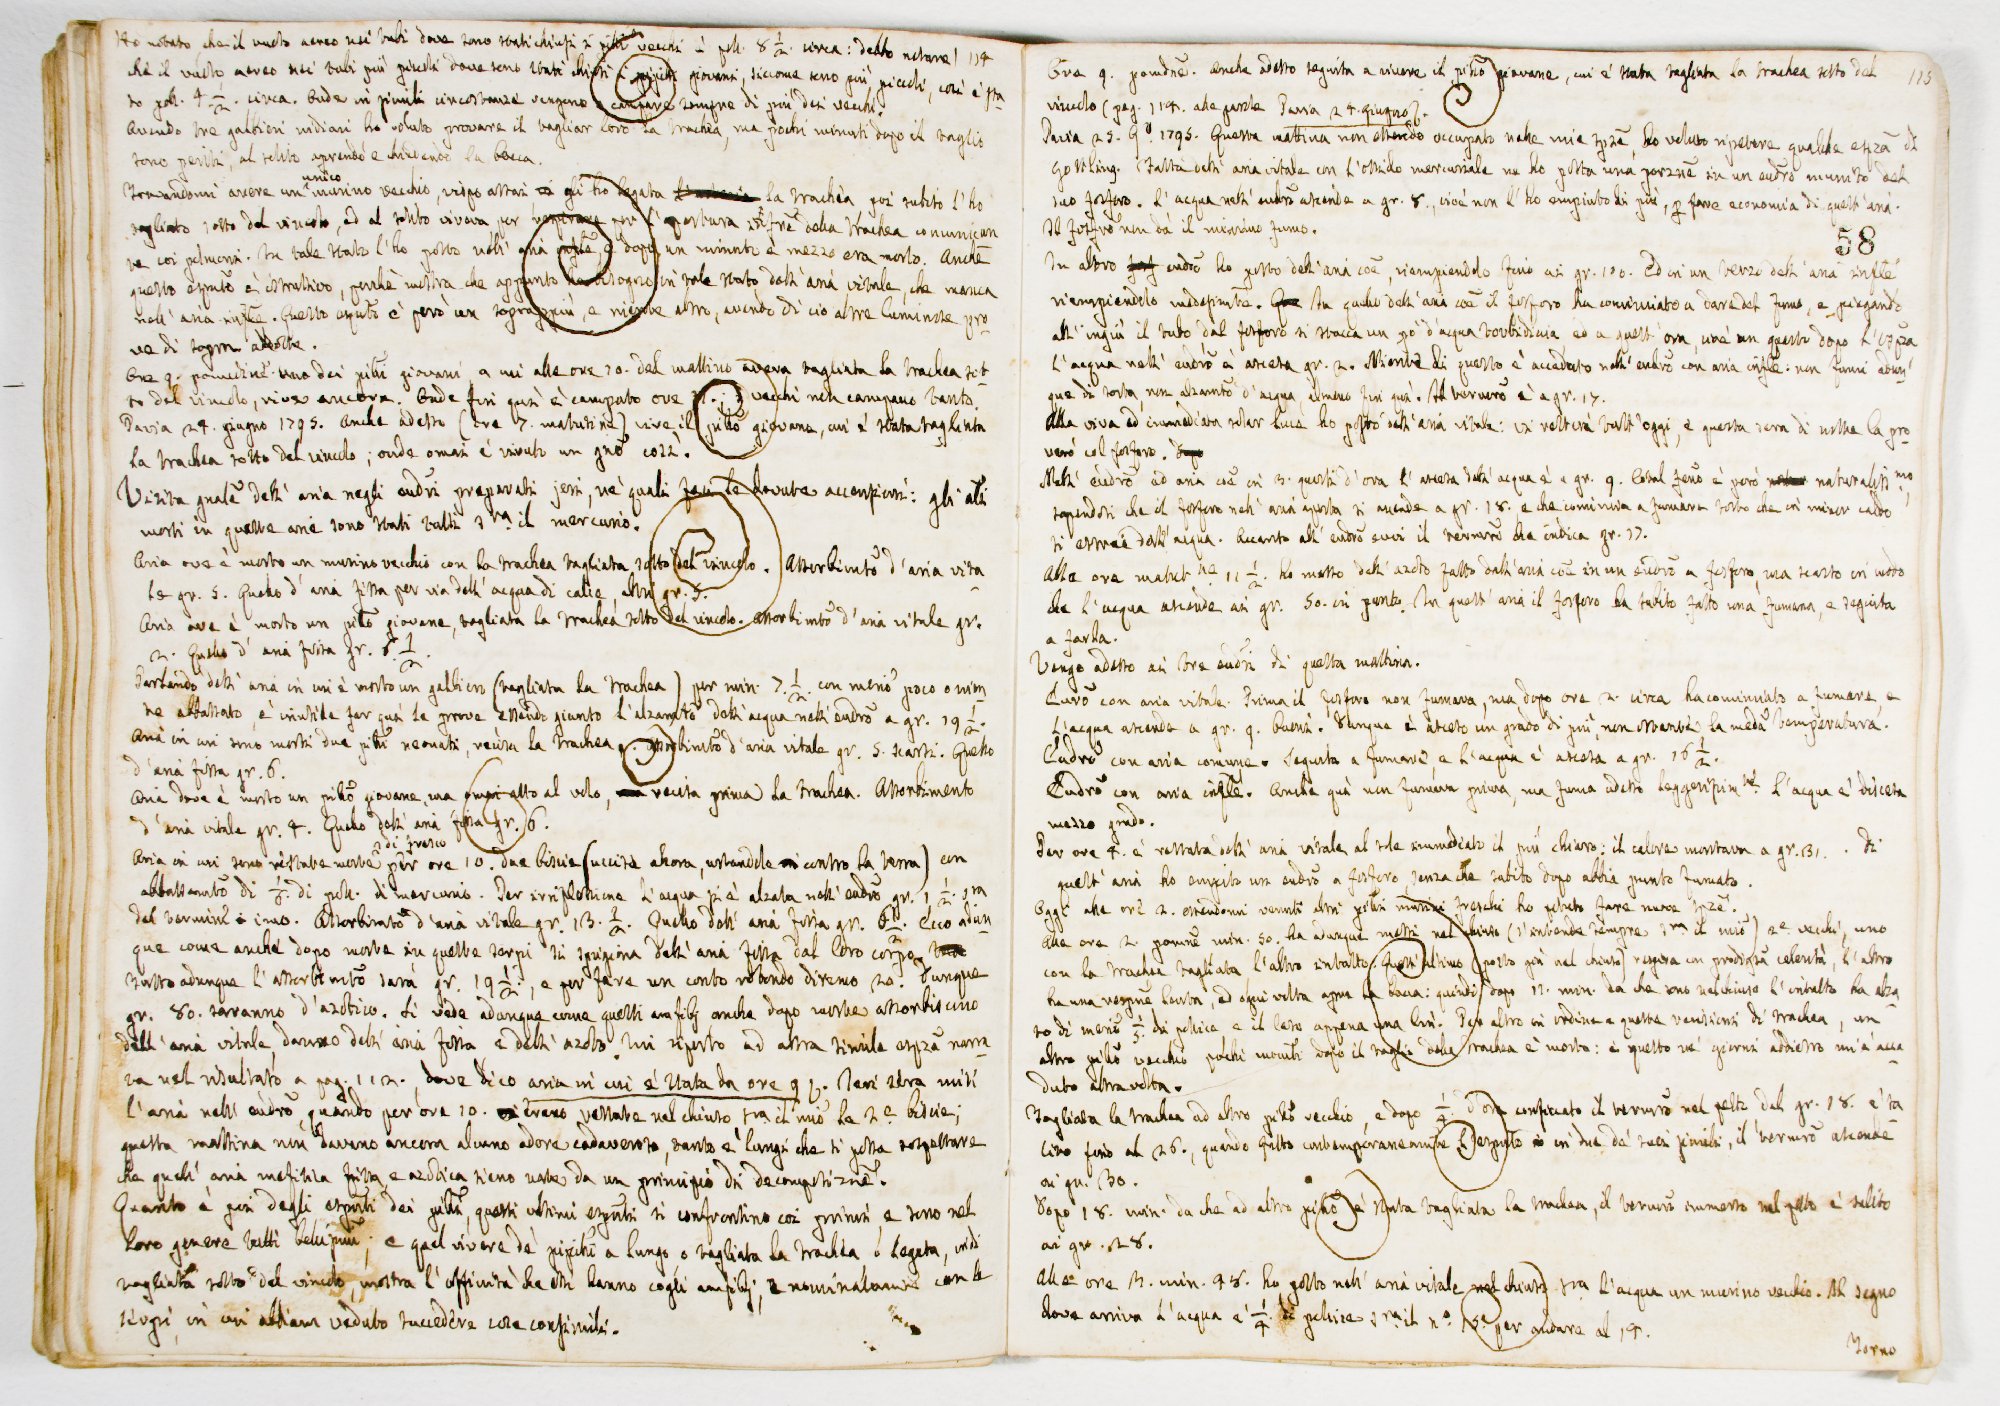 Ho notato che il vuoto aereo nei tubi dove sono stati chiusi i pilri vecchi è poll. 8 1/2. circa: debbo notare 114
che il vuoto aereo nei tubi più piccoli dove sono stati chiusi i giovani, siccome sono più piccoli, così è sta
to poll. 4 1/2. circa. Onde in simili circostanze vengono a campare sempre di più dei vecchi.
Avendo tre galletti indiani ho voluto provare il tagliar loro la trachea, ma pochi minuti dopo il taglio
sono periti, al solito aprendo e chiudendo la bocca.
Trovandomi avere un unico murino vecchio, vispo assai gli ho legata la trachea poi subito l'ho
tagliato sotto del vincolo, ed al solito viveva per respirare per l'apertura della trachea comunican
te coi polmoni. In tale stato l'ho posto nell'aria e dopo un minuto e mezzo era morto. Anche
questo è istruttivo, perchè mostra che appunto ha bisogno in tale stato dell'aria vitale, che manca
nell'aria. Questo è però un soprappiù, e niente altro, avendo di ciò altre luminose pro
ve di sopra addotte.
Ore 9. pomeridne. uno dei pilri giovani a cui alle ore 10. del mattino aveva tagliata la trachea sot
to del vincolo, vive ancora. Onde fin qui è campato ore 11.; i vecchi non campano tanto.
Pavia 24. giugno 1795. Anche adesso (ore 7. matutine) vive il giovane, cui è stata tagliata
la trachea sotto del vincolo; onde omai è vivuto un gno così.
Visita dell'aria negli eudri preparati jeri, ne' quali feci le dovute accensioni: gli ali
morti in queste arie sono stati tutti sra il mercurio.
Aria ove è morto un murino vecchio con la trachea tagliata sotto del vincolo. Assorbimto d'aria vita
le gr. 5. Quello d'aria fissa per via dell'acqua di calce, altri gr. 5.
Aria ove è morto un giovane, tagliata la trachea sotto del vincolo. Assorbimto d'aria vitale gr.
2. Quello d'aria fissa gr. 6. 1/2.
Parlando dell'aria in cui è morto un (tagliata la trachea) per min. 7. 1/2. con meno poco o nien
te abbassato, è inutile far qui le prove essendo giunto l'alzamto dell'acqua nell'eudro a gr. 19 1/2.
Aria in cui sono morti due neonati, recisa la trachea. Assorbimto d'aria vitale gr. 5. scarsi. Quello
d'aria fissa gr. 6.
Aria dove è morto un giovane, ma al volo, recisa prima la trachea. Assorbimento
d'aria vitale gr. 4. Quello dell'aria fissa gr. 6.
Aria in cui sono restate morte di fresco per ore 10. due biscie (uccise allora, urtandole contro la terra) con
abbassamto di 1/3. di poll. di mercurio. Per l'acqua si è alzata nell'eudro gr. 1 1/2.
del. Assorbimto d'aria vitale gr. 13. 1/2. Quello dell'aria fissa gr. 6 1/2. Ecco adun
que come anche dopo morte in queste serpi si sprigiona dell'aria fissa dal loro corpo.
Tutto adunque l'assorbimto sarà gr. 19 1/2., e per fare un conto rotondo diremo 20. Dunque
gr. 80. saranno d'azotico. Si vede adunque come questi amfibj anche dopo morte assorbiscono
dell'aria vitale, danno dell'aria fissa e dell'azoto. Mi riporto ad altra simile espza narra
ta nel risultato a pag. 112., dove dico aria in cui è stata da ore 9. Jeri sera misi
l'aria nell'eudro, quando per ore 10. erano restate nel chiuso sra il mio le 2e biscie;
questa mattina non davano ancora alcuno odore cadaveroso, tanto è lungi che si possa sospettare
che quell'aria mefitica fissa e azotica sieno nate da un principio di decomposizne.
Quanto è poi degli espti dei, questi ultimi espti si confrontino coi primi, e sono nel
loro genere tutti bellissimi; e quel vivere de' a lungo o tagliata la trachea o legata, indi
tagliata sotto del vincolo, mostra l'affinità che essi hanno cogli amfibj, e nominatamte con le
serpi, in cui abbiam veduto succedere cose consimili.
Ore 9. pomdne. Anche adesso seguita a vivere il giovane, cui è stata tagliata la trachea sotto del 115
vincolo (pag. 114. alle parole Pavia 24. giugno).
Pavia 25. Go 1795. Questa mattina non essendo occupato nelle mie spze, ho voluto ripetere qualche espza di
Gottling. Fatta dell'aria vitale con l'ossido mercuriale ne ho posta una porzne in un eudro munito del
suo fosforo. L'acqua nell'eudro ascende a gr. 8., cioè non l'ho empiuto di più, p fare economia di quest'aria.
Il fosfro non dà il minimo fumo.
58
In altro eudro ho posto dell'aria coe, riempiendolo fino ai gr. 100. Ed in un terzo dell'aria
riempiendolo medesimte. In quello dell'aria coe il fosforo ha cominciato a dare del fumo, e piegando
all'ingiù il tubo dal fosforo si stacca un pò d'acqua torbidiccia ed a quest'ora, cioè un quarto dopo l'espza
l'acqua nell'eudro è ascesa gr. 2. Niente di questo è accaduto nell'eudro con aria: non fumi adun
que di sorta, non alzamto d'acqua, almeno fin qui. Il termro è a gr. 17.
Alla viva ed immediata solar luce ho posto dell'aria vitale: vi resterà tutt'oggi, e questa sera di notte la pro
verò col fosforo.
Nell'eudro ad aria coe in 3. quarti d'ora l'ascesa dell'acqua è a gr. 9. Cotal feno è però naturalissimo,
sapendosi che il fosforo nell'aria aperta si accende a gr. 18. e che comincia a fumare tosto che in minor caldo
si estrae dall'acqua. Accanto all'eudro evvi il termro che indica gr. 17.
Alle ore matutne 11 1/2. ho messo dell'azoto fatto dall'aria coe in un eudro a fosforo, ma scarso in modo
che l'acqua ascende ai gr. 50. in punto. In quest'aria il fosforo ha subito fatto una fumana, e seguita
a farla.
Vengo adesso ai tre eudri di questa mattina.
Eudro con aria vitale. Prima il fosforo non fumava, ma dopo ore 2. circa ha cominciato a fumare, e
l'acqua ascende a gr. 9. buoni. Dunque è asceso un grado di più non ostante la meda temperatura.
Eudro con aria comune. Seguita a fumare, e l'acqua è ascesa a gr. 16 1/2.
Eudro con aria. Anche quà non fumava prima, ma fuma adesso leggerissimte. L'acqua è discesa
mezzo grado.
Per ore 4. è restata dell'aria vitale al sole immediato il più chiaro: il calore montava a gr. 31. Di
quest'aria ho empito un eudro a fosforo, senza che subito dopo abbia punto fumato.
Oggi alle ore 2. essendomi venuti altri freschi ho potuto fare nuove spze.
Alle ore 2. pomne min. 50. ho adunque messi nel chiuso (s'intende sempre sra il mio) 2e vecchi, uno
con la trachea tagliata l'altro intatto. Quest'ultimo (posto già nel chiuso) respira con prodigiosa celerità, l'altro
ha una respne tarda, ed ogni volta apre la bocca: quindi dopo 12. min. da che sono nel chiuso l'intatto ha alza
to di meno 1/3. di pollice e il leso appena una lin. Per altro in ordine a queste recisioni di trachea, un
altro vecchio pochi minuti dopo il taglio della trachea è morto: e questo ne' giorni addietro mi è acca
duto altra volta.
Tagliata la trachea ad altro vecchio, e dopo 1/2. d'ora conficcato il termro nel petto dal gr. 18. è sa
lito fino al 26., quando fatto contemporaneamente l'espto in due de' suoi simili, il termro ascende
ai gr. 30.
Dopo 18. min. da che ad altro è stata tagliata la trachea, il termro immerso nel petto è salito
ai gr. 28.
Alle ore 3. min. 48. ho posto nell'aria vitale nel chiuso sra l'acqua un murino vecchio. Al segno
dove arriva l'acqua è 1/4. di pollice sra il no. per andare al 14.
Torno